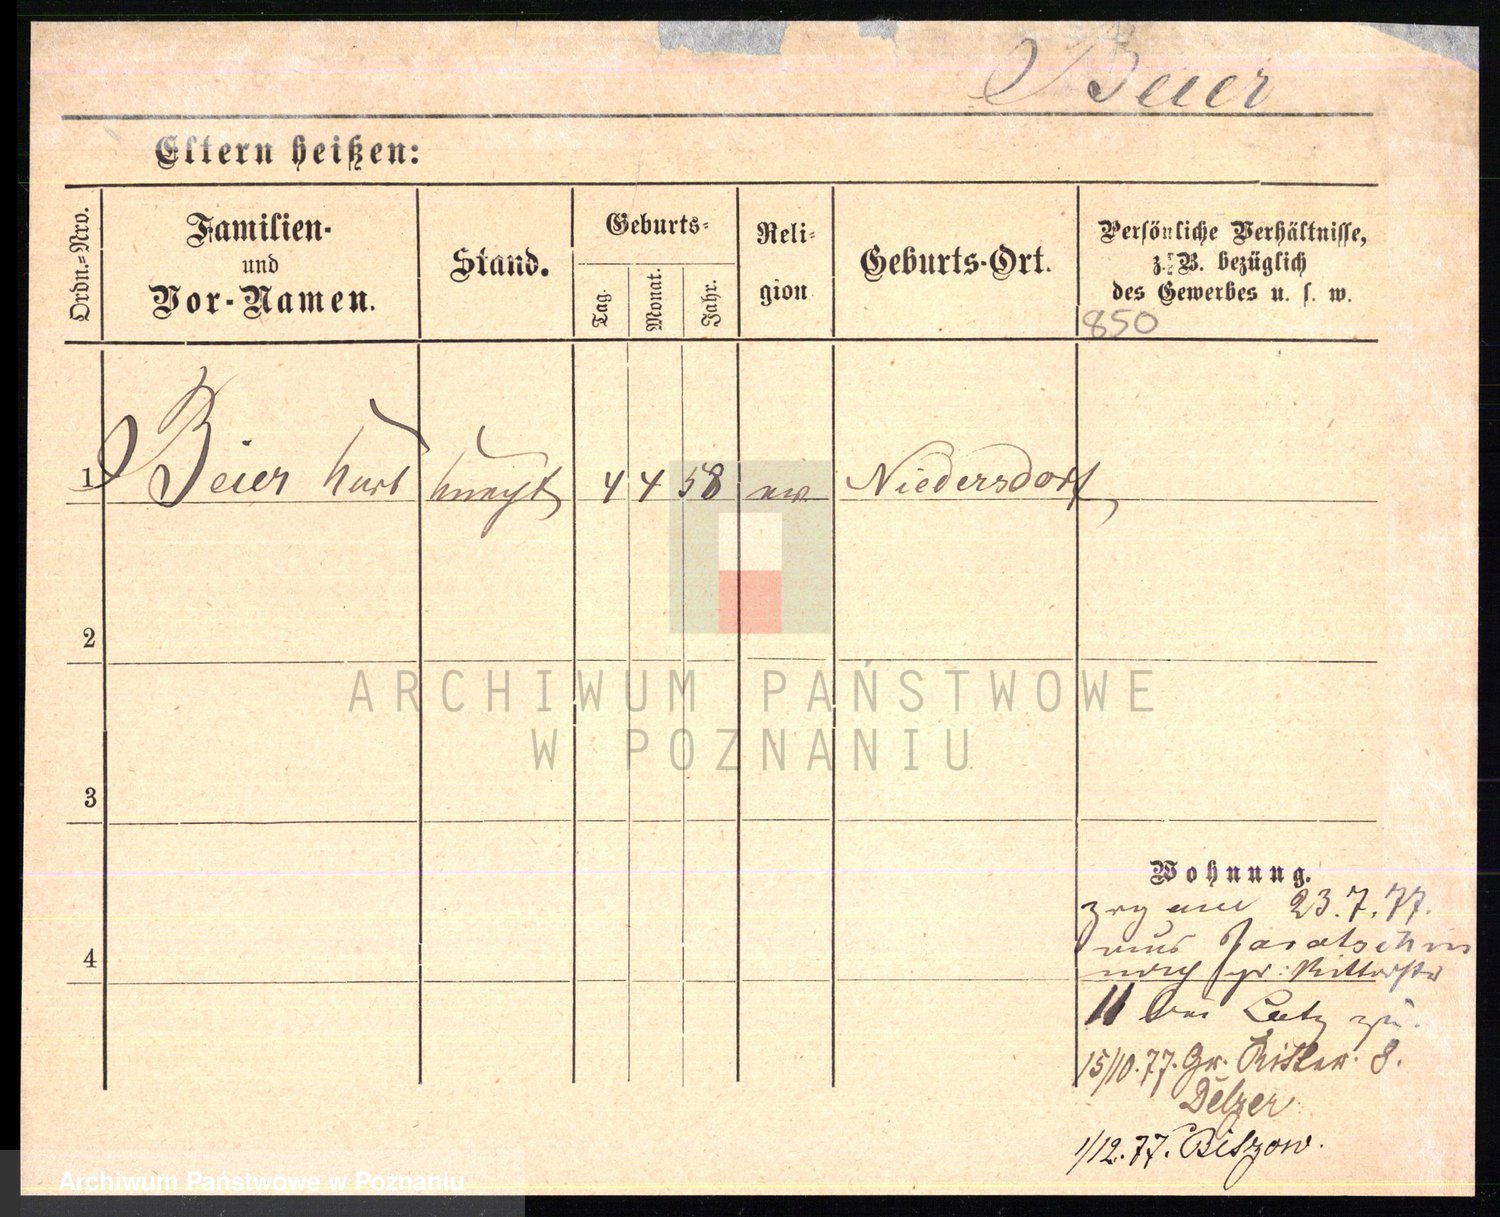 Beier
Eltern heißen:
Ordn.=Nro.
Familien-
und
Vor-Namen.
Stand.
Geburts=
Tag.
Monat.
Jahr.
Reli=
gion
Geburts-Ort.
Persönliche Verhältnisse,
z. B. bezüglich
des Gewerbes u. s. w.
850
1 Beier Kurt Knecht 4 4 58 ev Niedersdorf
2
3
4
Wohnung.
zog am 23.7.77.
aus Jaratschin
nach gr: Ritterstr
11 bei Lutz zu.
15/10.77. Gr. Ritter. 8.
Delzer
1/12.77. Bitzow.
ARCHIWUM PAŃSTWOWE
W POZNANIU
Archiwum Państwowe w Poznaniu